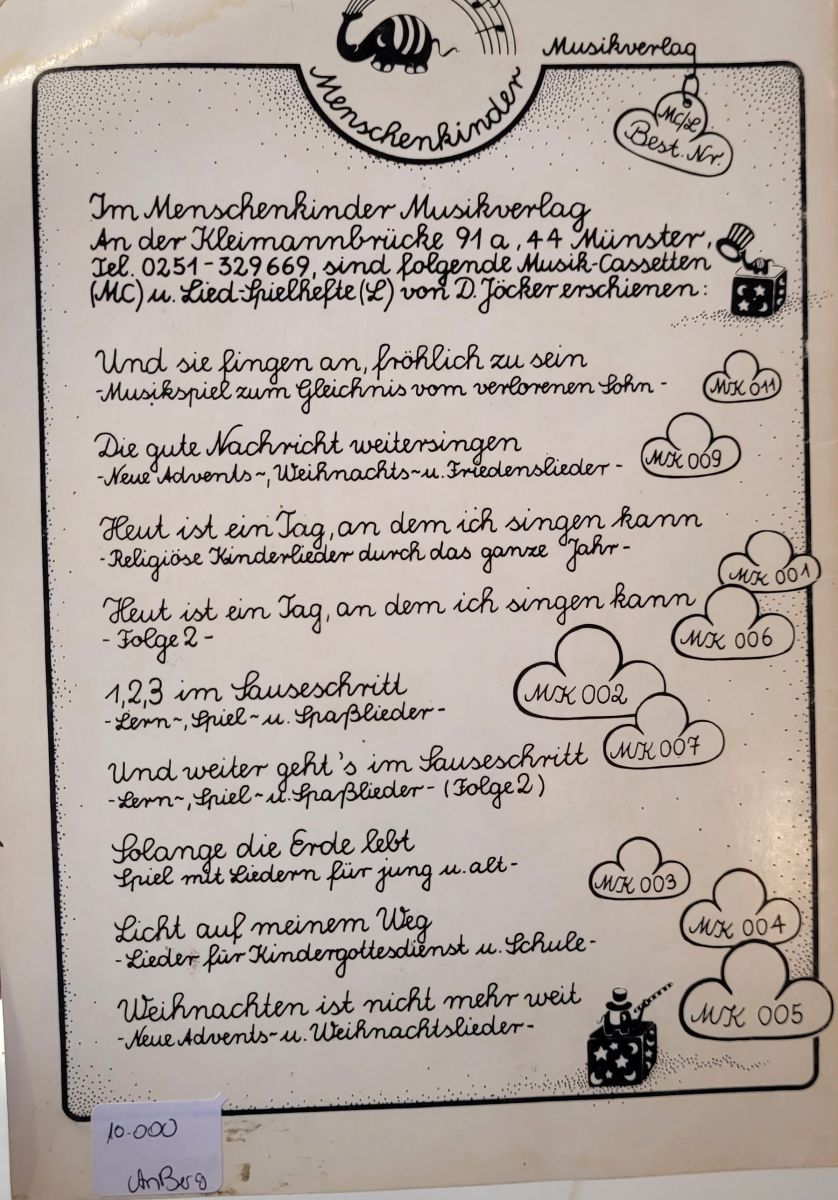 Menschenkinder
Musikverlag
MC/L
Best. Nr.
Im Menschenkinder Musikverlag
An der Kleimannbrücke 91 a, 44 Münster,
Tel. 0251-329669, sind folgende Musik-Cassetten
(MC) u. Lied-Spielhefte (L) von D. Jöcker erschienen:
Und sie fingen an, fröhlich zu sein
-Musikspiel zum Gleichnis vom verlorenen Sohn-
MK 011
Die gute Nachricht weitersingen
-Neue Advents~, Weihnachts~ u. Friedenslieder-
MK 009
Heut ist ein Tag, an dem ich singen kann
-Religiöse Kinderlieder durch das ganze Jahr-
MK 001
Heut ist ein Tag, an dem ich singen kann
- Folge 2 -
MK 006
1,2,3 im Sauseschritt
-Lern~, Spiel~ u. Spaßlieder-
MK 002
Und weiter geht's im Sauseschritt
-Lern~, Spiel~ u. Spaßlieder- (Folge 2)
MK 007
Solange die Erde lebt
Spiel mit Liedern für jung u. alt-
MK 003
Licht auf meinem Weg
-Lieder für Kindergottesdienst u. Schule-
MK 004
Weihnachten ist nicht mehr weit
-Neue Advents- u. Weihnachtslieder-
MK 005
10.000
AnBerg